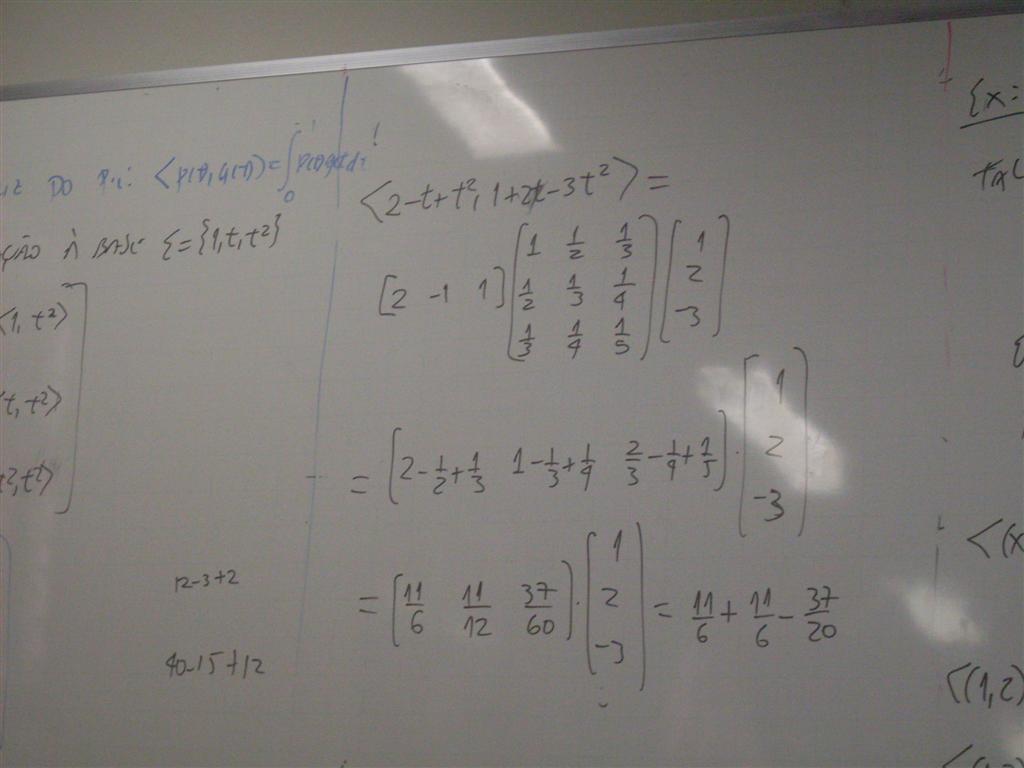 DO P.i: ⟨p(t), q(t)⟩ = ∫₀¹ p(t)q(t)dt
À BASE ξ = {1, t, t²}
⟨1, t²⟩
t, t²⟩
t², t²⟩
12-3+2
40-15+12
⟨2-t+t², 1+2t-3t²⟩ =
[2 -1 1] [1 1/2 1/3; 1/2 1/3 1/4; 1/3 1/4 1/5] [1; 2; -3]
= [2-1/2+1/3 1-1/3+1/4 2/3-1/4+1/5] · [1; 2; -3]
= [11/6 11/12 37/60] · [1; 2; -3] = 11/6 + 11/6 - 37/20
{x:
⟨(x
⟨(1,2)